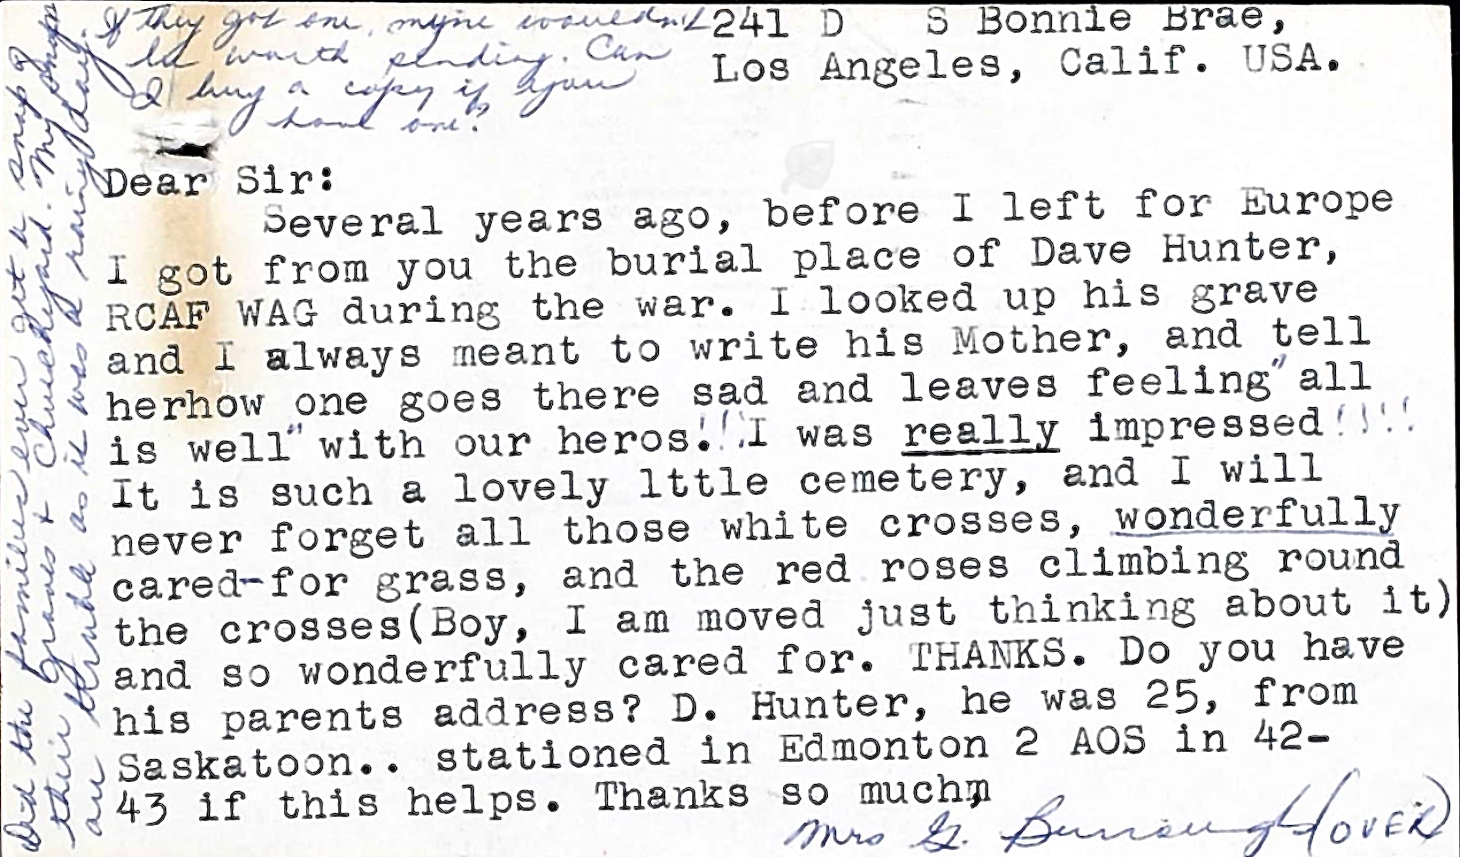 241 D S Bonnie Brae,
Los Angeles, Calif. USA.
Dear Sir:
Several years ago, before I left for Europe
I got from you the burial place of Dave Hunter,
RCAF WAG during the war. I looked up his grave
and I always meant to write his Mother, and tell
herhow one goes there sad and leaves feeling" all
is well" with our heros!!! I was really impressed!!!!
It is such a lovely lttle cemetery, and I will
never forget all those white crosses, wonderfully
cared-for grass, and the red roses climbing round
the crosses(Boy, I am moved just thinking about it)
and so wonderfully cared for. THANKS. Do you have
his parents address? D. Hunter, he was 25, from
Saskatoon.. stationed in Edmonton 2 AOS in 42-
43 if this helps. Thanks so much
Mrs G. Burrough (OVER)
Did the families ever get a snap of
their graves + Churchyard. My snaps
are terrible as it was a rainy day.
If they got one, myne wouldn't
be worth sending. Can
I buy a copy if you
have one?